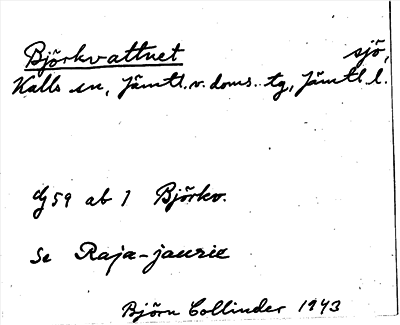 Björkvattnet sjö,
Kalls sn, Jämtl. v. doms. tg, Jämtl. l.
59 ab 1 Björkv.
Se Raja-jaurie
Björn Collinder 1943